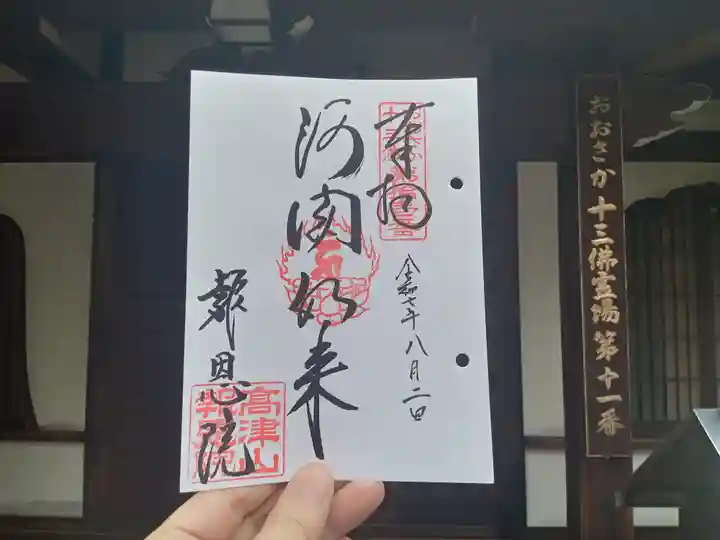 おおさか十三佛霊場第十一番
奉拝
令和七年八月二日
阿閦如来
報恩院
高津山
報恩院